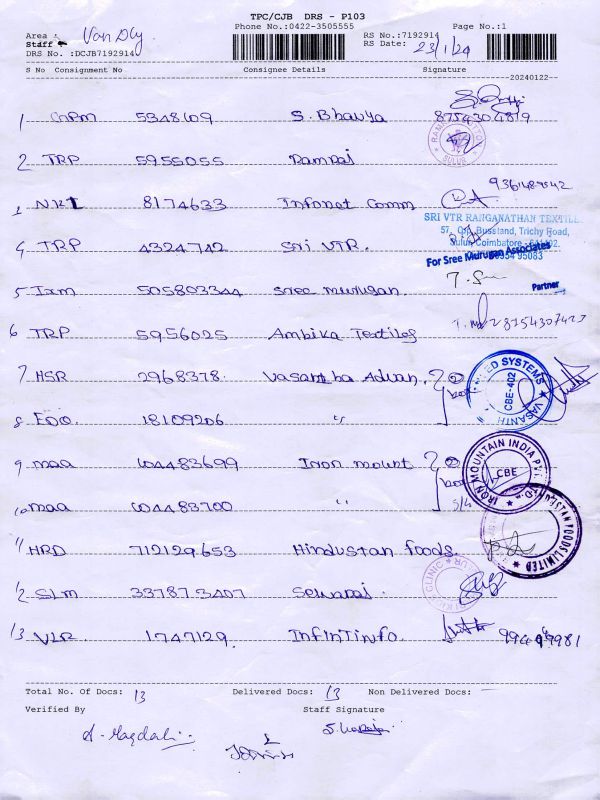 TPC/CJB DRS - P103
Phone No.:0422-3505555 Page No.:1
Area : Van Dly RS No.:7192914
Staff : RS Date: 23/1/24
DRS No. :DCJB7192914
S No Consignment No Consignee Details Signature
20240122
1 5348109 S. Bhavya 8754304819
2 TRP 5955055 Ramraj
SULUR
3 8174633 Infonet Comm 9361487542
SRI VTR RANGANATHAN TEXTILE
57, Opp. Busstand, Trichy Road,
4 TRP 4324742 Sri VTR.
Sulur, Coimbatore
For Sree Murugan Associates
95083
5 Ixm 505803344 Sree murugan.
Partner
6 TRP 5956025 Ambika Textiles
7 HSR 2968378. Vasantha Advan.
SYSTEMS
CBE-402
VASANTH
8 EDO. 18109206 "
9 maa 604483699 Iron mount
IRON MOUNTAIN INDIA PVT.
CBE
10 maa 604483700 "
11 HRD 712129653 Hindustan foods.
FOODS LIMITED
CLINIC
12 SLM 33787.3407 Selvaraj.
13 VLR. 1747129. InfinTinfo.
Total No. Of Docs: 13 Delivered Docs: 13 Non Delivered Docs: —
Verified By Staff Signature
A. Magdali